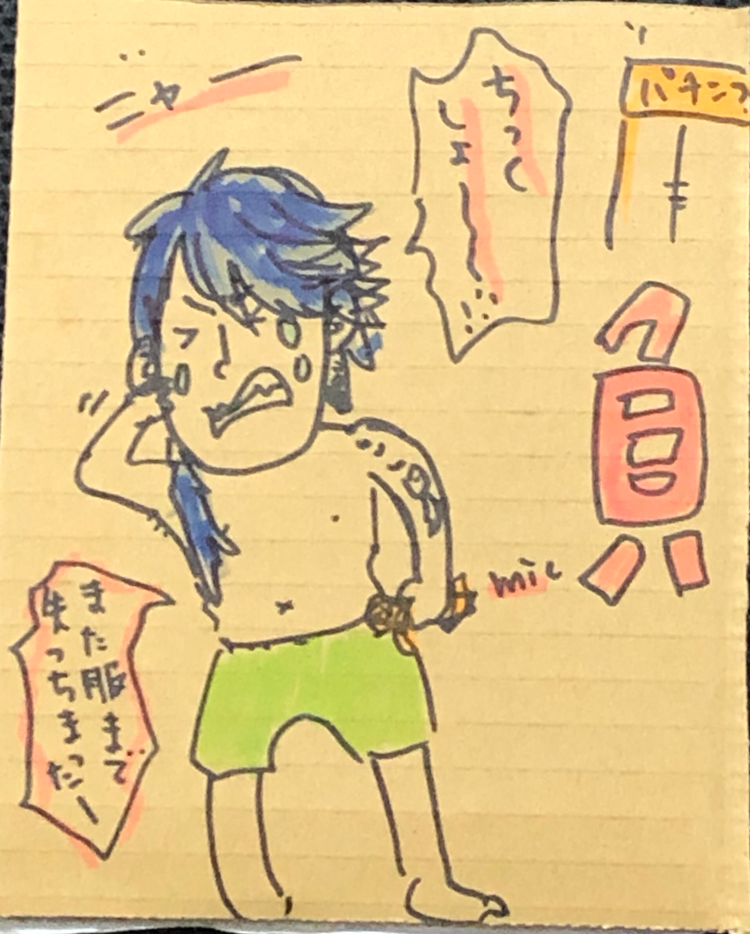 パチンコ
ちっく
しょー…
ニャー
負
mic
また服まで
失っちまったー